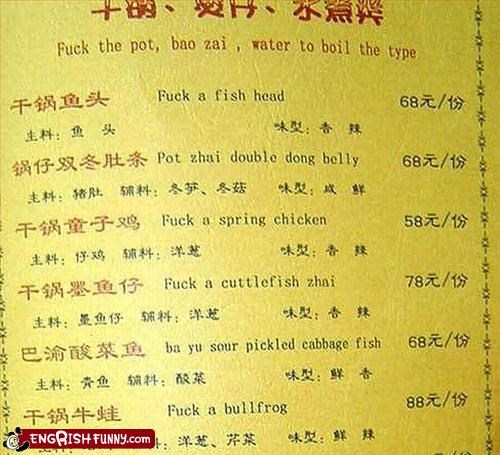 Fuck the pot, bao zai , water to boil the type
干锅鱼头 Fuck a fish head 68元/份
主料: 鱼 头 味型: 香 辣
锅仔双冬肚条 Pot zhai double dong belly 68元/份
主料: 猪肚 辅料: 冬笋、冬菇 味型: 咸 鲜
干锅童子鸡 Fuck a spring chicken 58元/份
主料: 仔鸡 辅料: 洋葱 味型: 香 辣
干锅墨鱼仔 Fuck a cuttlefish zhai 78元/份
主料: 墨鱼仔 辅料: 洋葱 味型: 香 辣
巴渝酸菜鱼 ba yu sour pickled cabbage fish 68元/份
主料: 青鱼 辅料: 酸菜 味型: 鲜 香
干锅牛蛙 Fuck a bullfrog 88元/份
洋葱、芹菜 味型: 鲜 辣
ENGRISHFUNNY.com